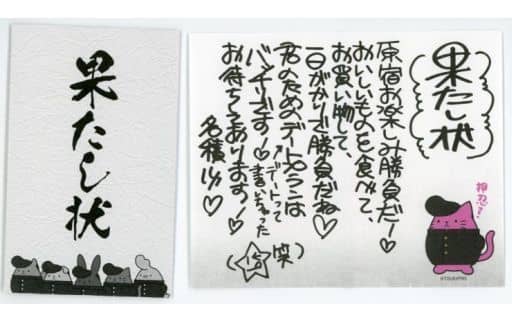 果たし状
果たし状
原宿お楽しみ勝負だー!♡
おいしいものを食べて、
お買い物して、
一日がかりで勝負だね♡
君のためのデートプランは
バッチリです!♡
デートって
書いちゃった
(笑)
お待ちしております!♡
押忍!